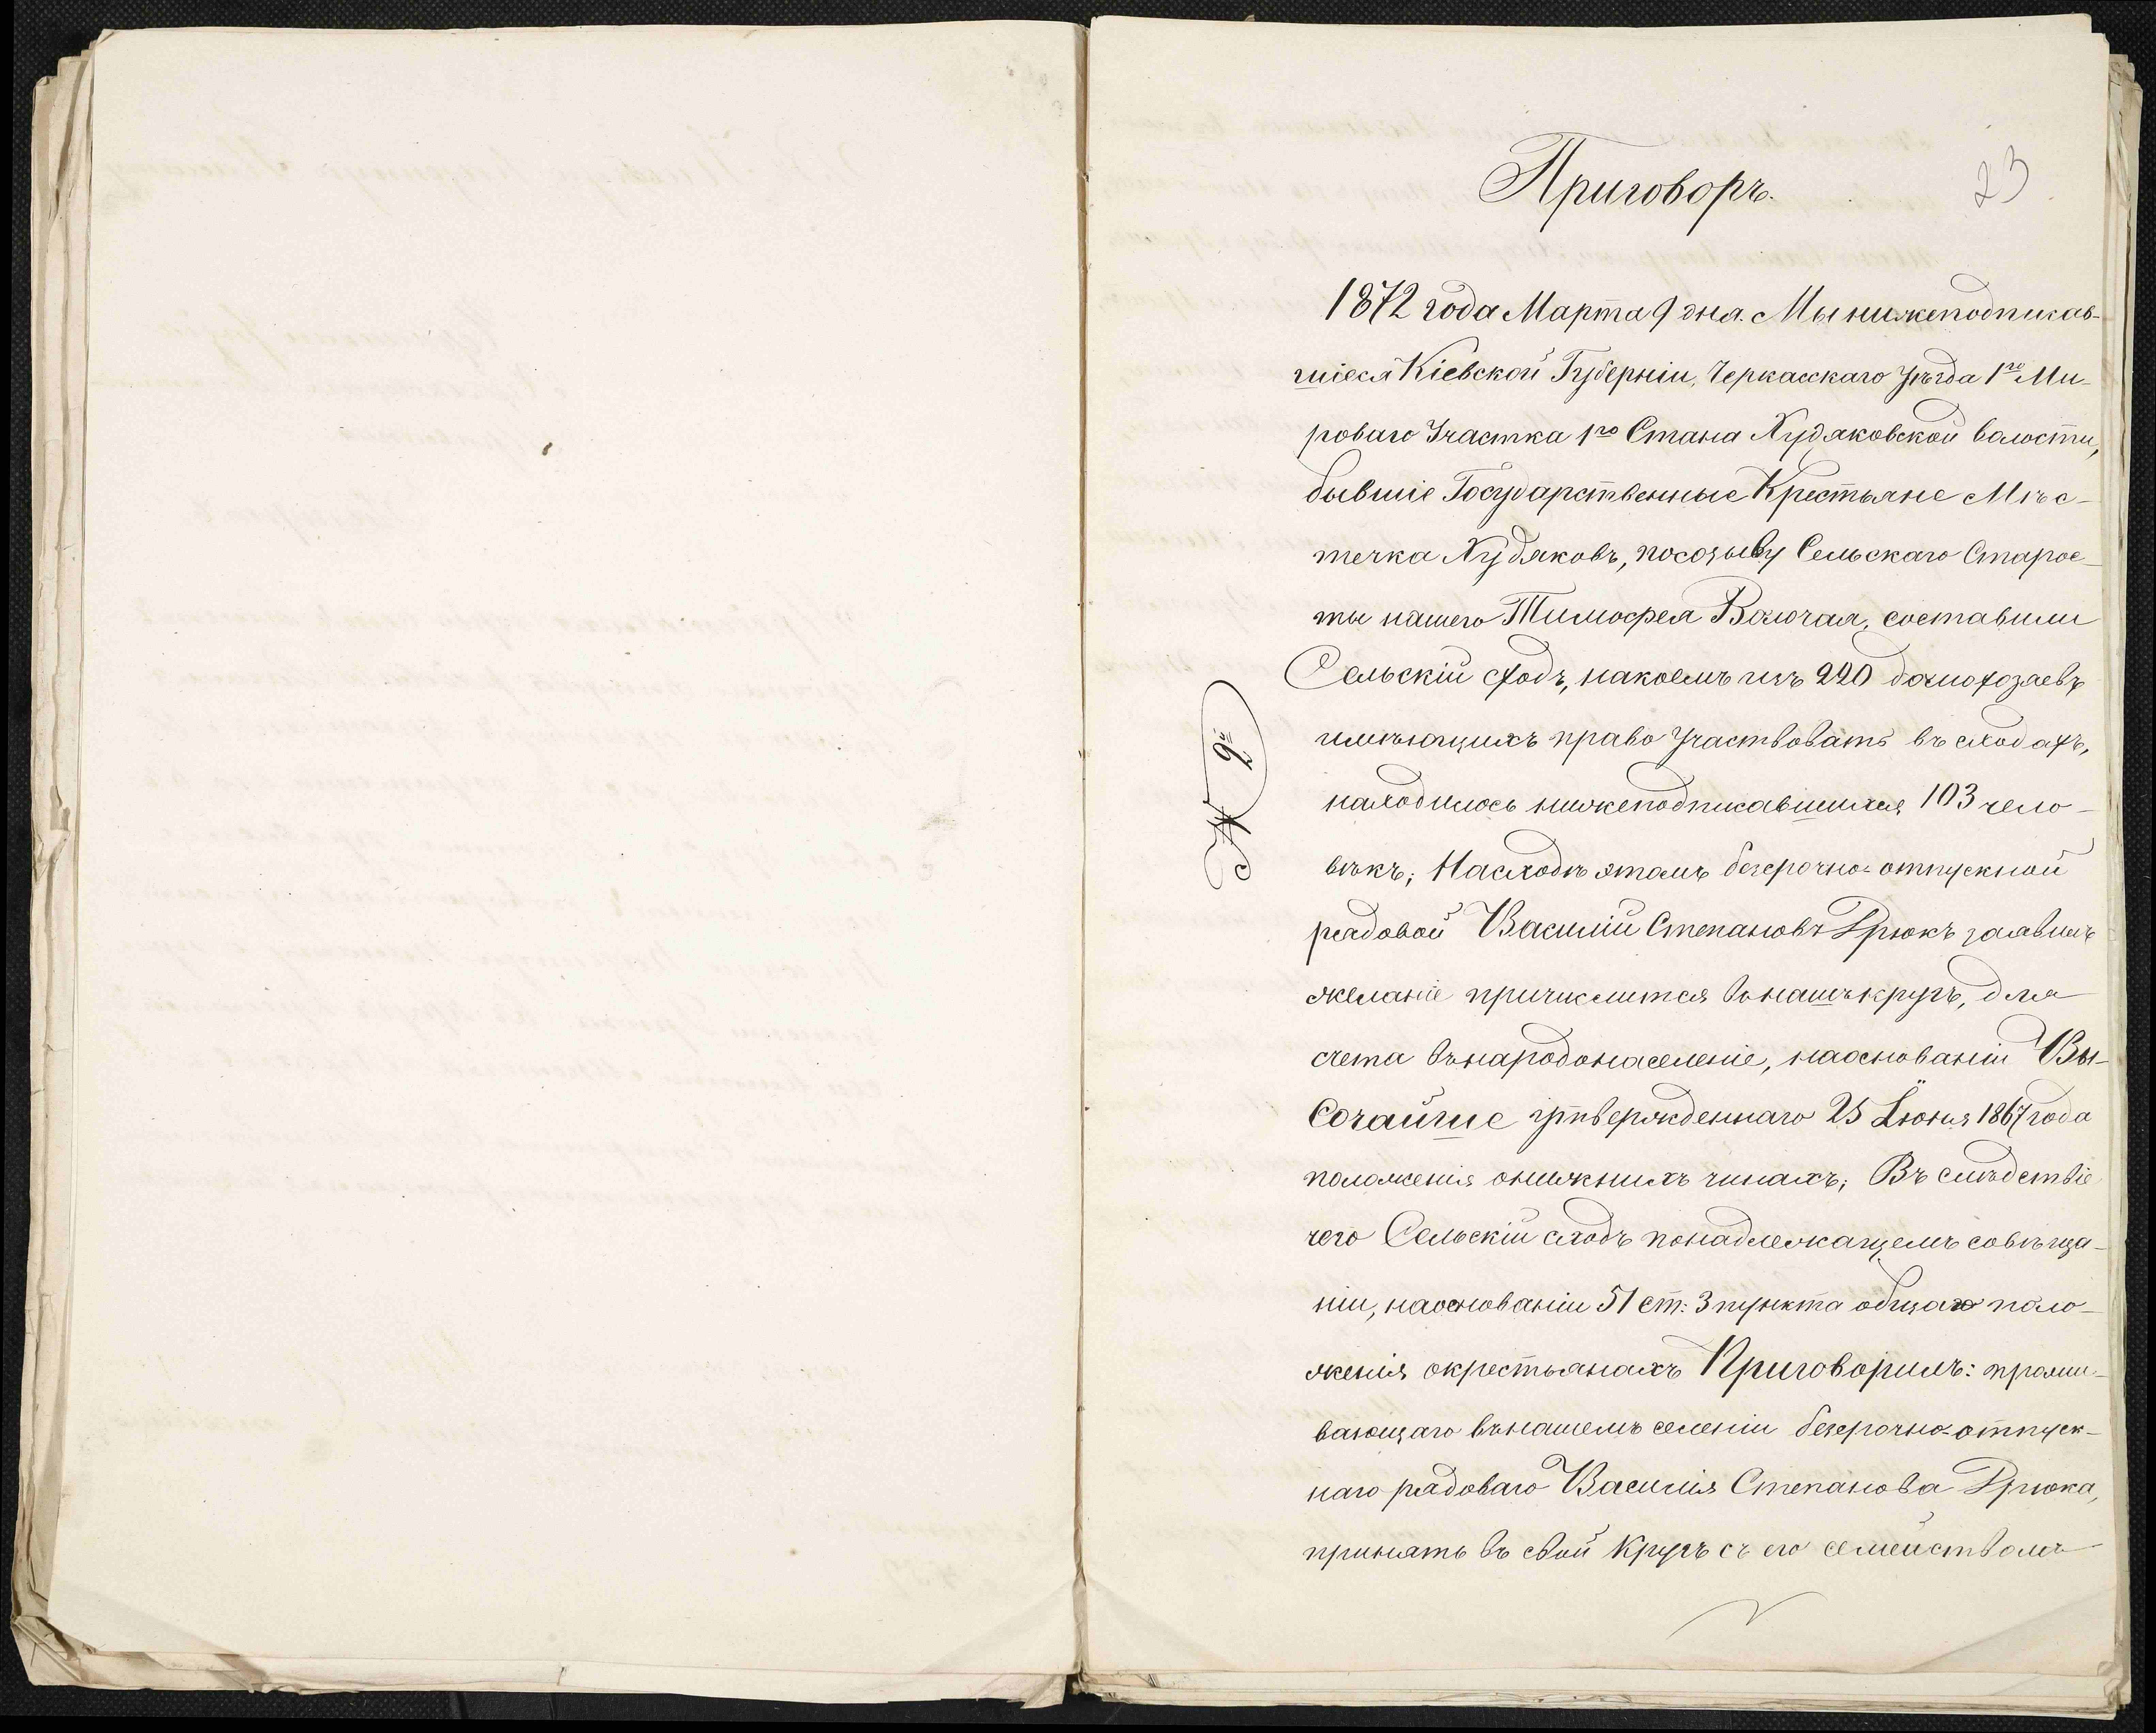 Приговоръ.
23
1872 года Марта 9 дня. Мы нижеподписав-
шіеся Кіевской Губерніи, Черкасскаго Уѣзда 1го Ми-
роваго Участка 1го Стана Худяковской волости,
бывшіе Государственные Крестьяне Мѣс-
течка Худяковъ, посозыву Сельскаго Старос-
ты нашего Тимофея
составили
Сельскій сходъ, накоемъ изъ 220 домохозяевъ
имѣющихъ право участвовать въ сходахъ,
находилось нижеподписавшихся 103 чело-
вѣкъ; Насходѣ этомъ безсрочно-отпускной
рядовой Василій Степановъ
заявилъ
желаніе причислится внашъ кругъ, для
счета внародонаселеніе, наоснованіи Вы-
Сочайше утвержденнаго 25 Іюня 1867 года
положенія онижнихъ чинахъ; Въ слѣдствіе
чего Сельскій сходъ понадлежащемъ совѣща-
ніи, наоснованіи 51 ст: 3 пункта общаго поло-
женія окрестьянахъ Приговорилъ: прожи-
вающаго внашемъ селеніи безсрочно-отпуск-
наго рядоваго Василія Степанова
принять въ свой Кругъ съ его семействомъ
№ 9й